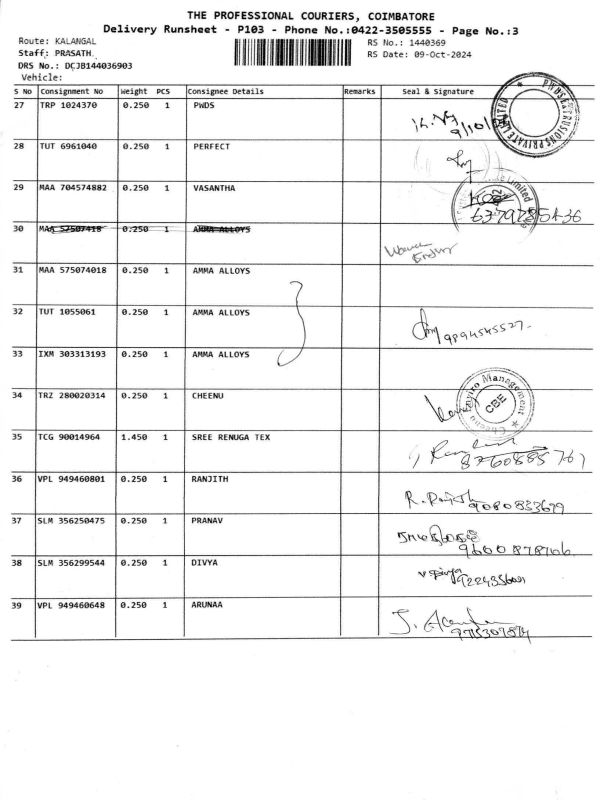 THE PROFESSIONAL COURIERS, COIMBATORE
Delivery Runsheet - P103 - Phone No.:0422-3505555 - Page No.:3
Route: KALANGAL RS No.: 1440369
Staff: PRASATH RS Date: 09-Oct-2024
DRS No.: DCJB144036903
Vehicle:
S No Consignment No Weight PCS Consignee Details Remarks Seal & Signature
27 TRP 1024370 0.250 1 PWDS
9/10/
PWDS EXTRUSIONS PRIVATE LIMITED
28 TUT 6961040 0.250 1 PERFECT
29 MAA 704574882 0.250 1 VASANTHA
Limited
30 MAA 57507418 0.250 1 AMMA ALLOYS
31 MAA 575074018 0.250 1 AMMA ALLOYS
32 TUT 1055061 0.250 1 AMMA ALLOYS
9894545527
33 IXM 303313193 0.250 1 AMMA ALLOYS
34 TRZ 280020314 0.250 1 CHEENU
Cheenu Enviro Management
CBE
35 TCG 90014964 1.450 1 SREE RENUGA TEX
8760885767
36 VPL 949460801 0.250 1 RANJITH
9080833679
37 SLM 356250475 0.250 1 PRANAV
9600878706
38 SLM 356299544 0.250 1 DIVYA
39 VPL 949460648 0.250 1 ARUNAA